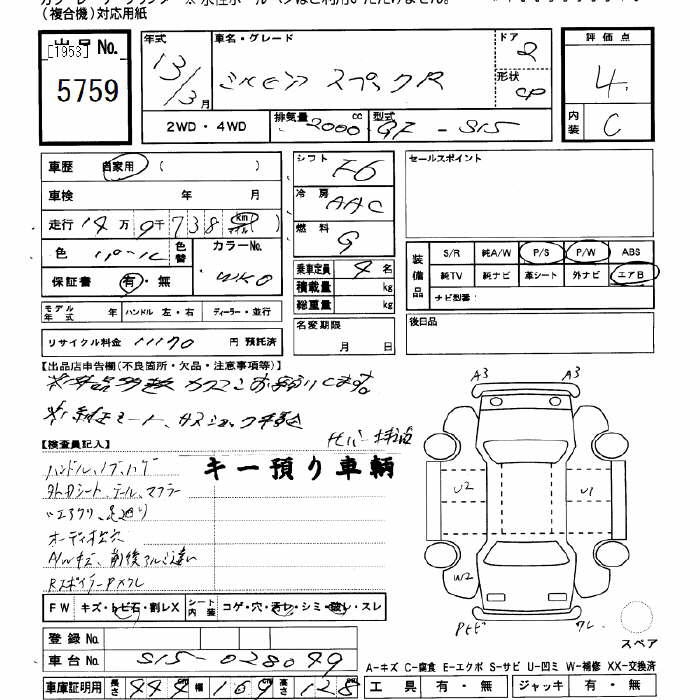 （複合機）対応用紙
出品No.
[1953]
5759
年式 13/3月
車名・グレード シルビア スペックR
ドア 2
形状 CP
評価点 4
内装 C
2WD・4WD
排気量 2000 cc
型式 GF-S15
車歴 自家用 （ ）
車検 年 月
走行 14万9千738 km マイル（ ）
色 パール 色替
カラーNo. WK0
保証書 有・無
シフト F6
冷房 AAC
燃料 G
乗車定員 4名
積載量 kg
総重量 kg
セールスポイント
装備品
S/R 純A/W P/S P/W ABS
純TV 純ナビ 革シート 外ナビ エアB
ナビ型番：
モデル年式 年 ハンドル 左・右 ディーラー・並行
リサイクル料金 11170 円 預託済
名変期限 月 日
後日品
【出品店申告欄（不良箇所・欠品・注意事項等）】
【検査員記入】
キー預り車輌
ハンドル、ノブ、ハゲ
社外シート、テール、マフラー
エアクリ、足廻り
オーディオ欠
A/Wキズ、前後アルミ違い
A3 A3
U2 U1
W2
FW キズ・トビ石・割レX シート内装 コゲ・穴・汚レ・シミ・破レ・スレ
登録No.
車台No. S15-028049
スペア
A-キズ C-腐食 E-エクボ S-サビ U-凹ミ W-補修 XX-交換済
車庫証明用 長さ 444 cm 幅 169 cm 高さ 128 cm
工具 有・無 ジャッキ 有・無